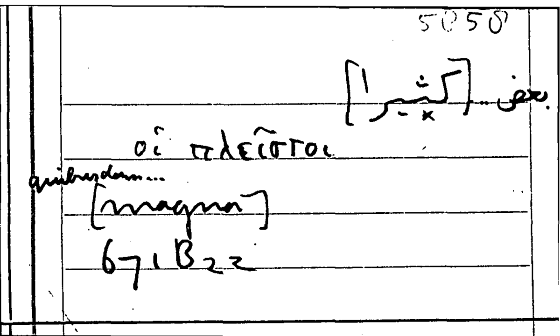 5058
بعض ... [كثيرا]
οἱ πλεῖστοι
quibusdam...
[magna]
671B22